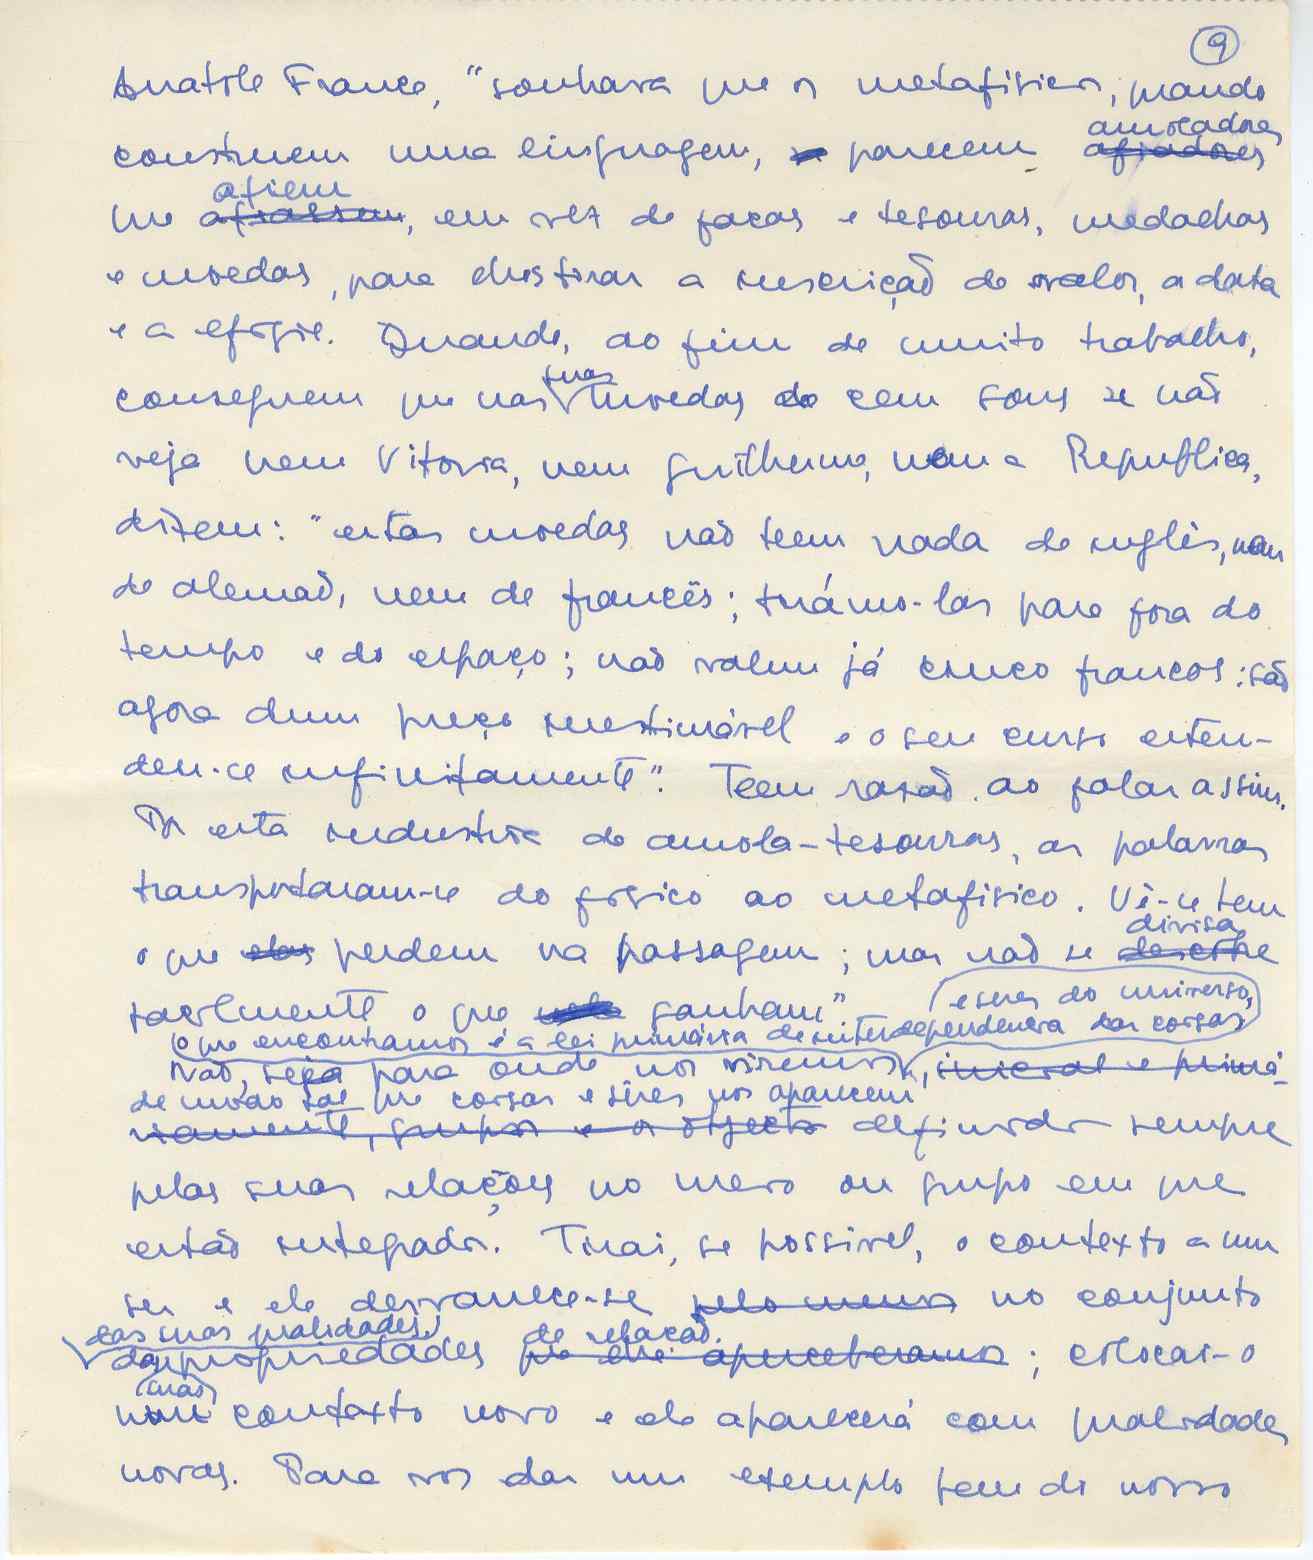 9
Anatole France, "sonhava que os metafísicos, quando
amoladores
construem uma linguagem, parecem afiadores
afiem
que afiassem, em vez de facas e tesouras, medalhas
e moedas, para lhes tirar a inscrição do valor, a data
e a efígie. Quando, ao fim de muito trabalho,
suas
conseguem que nas moedas de cem sous se não
veja nem Vitoria, nem Guilherme, nem a Republica,
dizem: "estas moedas não teem nada de inglês, nem
de alemão, nem de francês; tirámo-las para fora do
tempo e do espaço; não valem já cinco francos: são
agora dum preço inestimável e o seu curso esten-
deu-se infinitamente". Teem razão ao falar assim.
Por esta industria de amola-tesouras, as palavras
transportaram-se do físico ao metafísico. Vê-se bem
divisa
o que elas perdem na passagem; mas não se descobre
facilmente o que ganham"
e seres do universo,
O que encontramos é a lei primária de interdependencia das coisas
Não, seja para onde nos viremos, inicial e primá-
de modo tal que coisas e sêres nos aparecem
riamente, grupos e os objectos definidos sempre
pelas suas relações no meio ou grupo em que
estão integrados. Tirai, se possivel, o contexto a um
ser e ele desvanece-se pelo menos no conjunto
das suas qualidades,
de relação.
das propriedades que lhe apercebiamos; colocai-o
num contexto novo e ele aparecerá com qualidades
novas. Para vos dar um exemplo bem do nosso